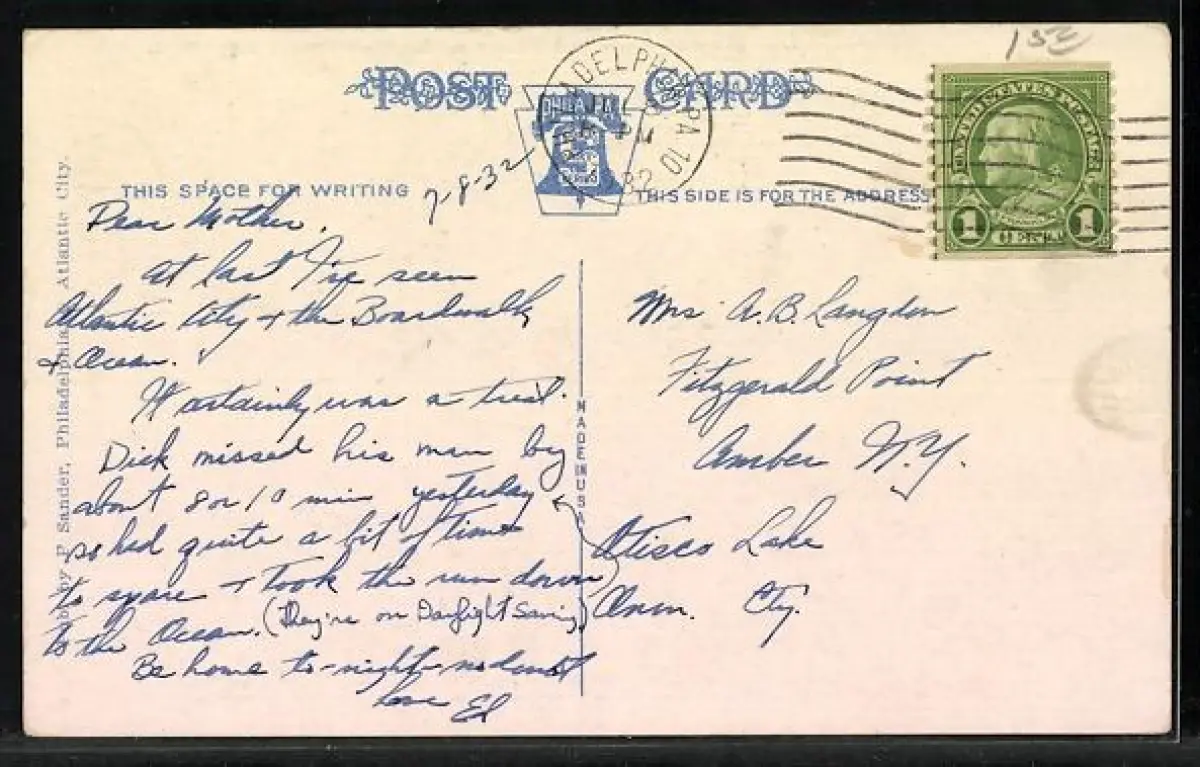 152
POST CARD
PHILADELPHIA PA 10
THIS SPACE FOR WRITING
7-8-32
THIS SIDE IS FOR THE ADDRESS
UNITED STATES POSTAGE
1 1
Dear Mother,
At last I've seen
Atlantic City + the Boardwalk
+ Ocean.
It certainly was a treat.
Dick missed his man by
about 8 or 10 min yesterday
so had quite a bit of time
to spare + took the run down
to the Ocean. (They're on Daylight Saving)
Be home to-night no doubt
love Ed
MADE IN USA
Mrs A.B. Langdon
Fitzgerald Point
Amber N.Y.
Otisco Lake
Onon. Cty.
by P Sander, Philadelphia Atlantic City.